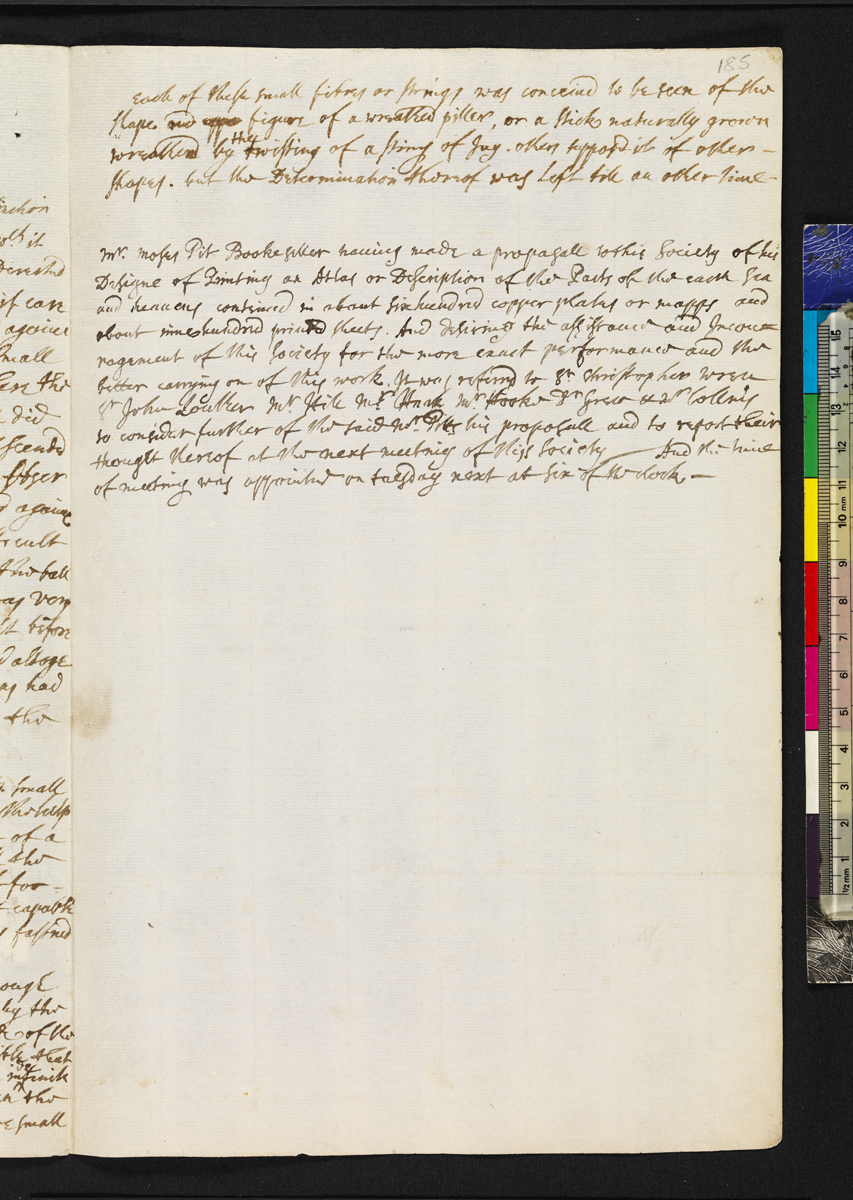 185
Each of these small fibres or strings was conceiud to be seen of the
shape figure of a wreathed piller, or a stick naturally grown
wreathed by the twisting of a string of Iuy. others supposd it of other
shapes. but the Determination thereof was Left till an other time
Mr. Moses Pit Bookeseller hauing made a propasall to this Society of his
Designe of Printing an Atlas or Description of the Parts of the earth Sea
and heauens contained in about six hundred copper plates or mapps and
about nine hundred printed sheets. And desiring the assistance and Incou
ragement of this Society for the more exact performance and the
better carrying on of this work. It was referrd to Sr. Christopher wren
Sr John Mr. Hill Mr. Haak Mr Hooke Dr Grew & Mr Collens
to consider further of the said Mr. Pitts his proposall and to report their
thought thereof at the next meeting of this Society And the time
of meeting was appointed on tuesday next at six of the clock. —
inchon
it
against
small
here the
did
against
the ball
was very
it before
as had
the
small
the help
of a
the
for
capable
fastned
by the
of the
that
infinit
the
small
15
14
13
12
11
10 mm
9
8
7
6
5
4
3
2
1
1/2 mm